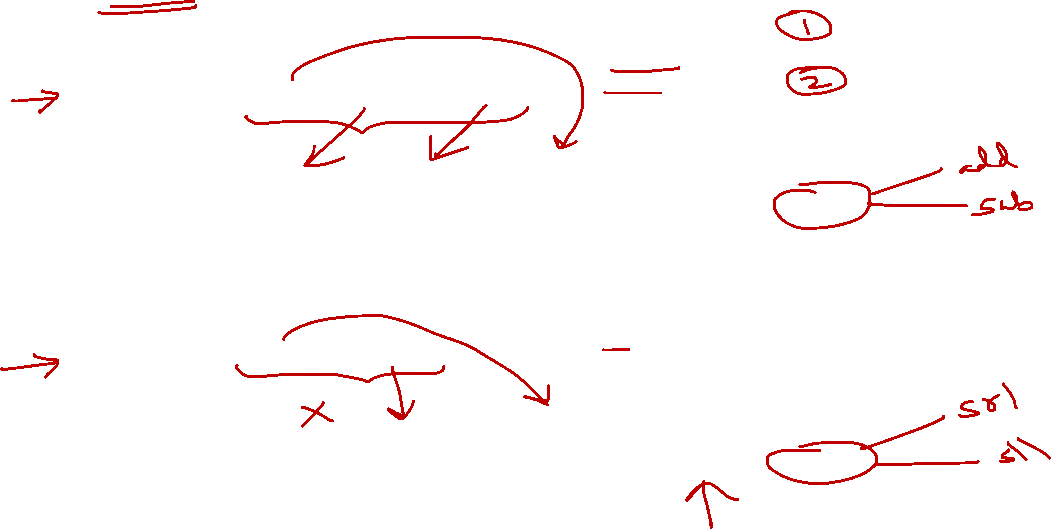 1
2
add
sub
x
srl
sll